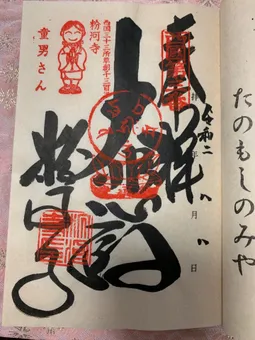 たのもしのみや
奉拝
令和二年八月八日
西国三十三所草創千三百年
粉河寺
童男さん
大悲殿
粉河寺